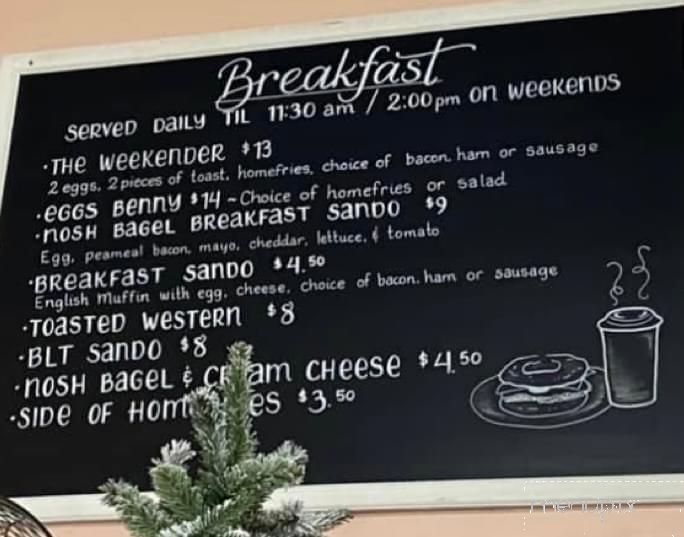 Breakfast
SERVED DAILY TIL 11:30 am / 2:00pm ON WEEKENDS
·THE WEEKENDER $13
2 eggs, 2 pieces of toast, homefries, choice of bacon, ham or sausage
·EGGS BENNY $14 ~ Choice of homefries or salad
·NOSH BAGEL BREAKFAST SANDO $9
Egg, peameal bacon, mayo, cheddar, lettuce, & tomato
·BREAKFAST SANDO $4.50
English Muffin with egg, cheese, choice of bacon, ham or sausage
·TOASTED WESTERN $8
·BLT SANDO $8
·NOSH BAGEL & CREAM CHEESE $4.50
·SIDE OF $3.50